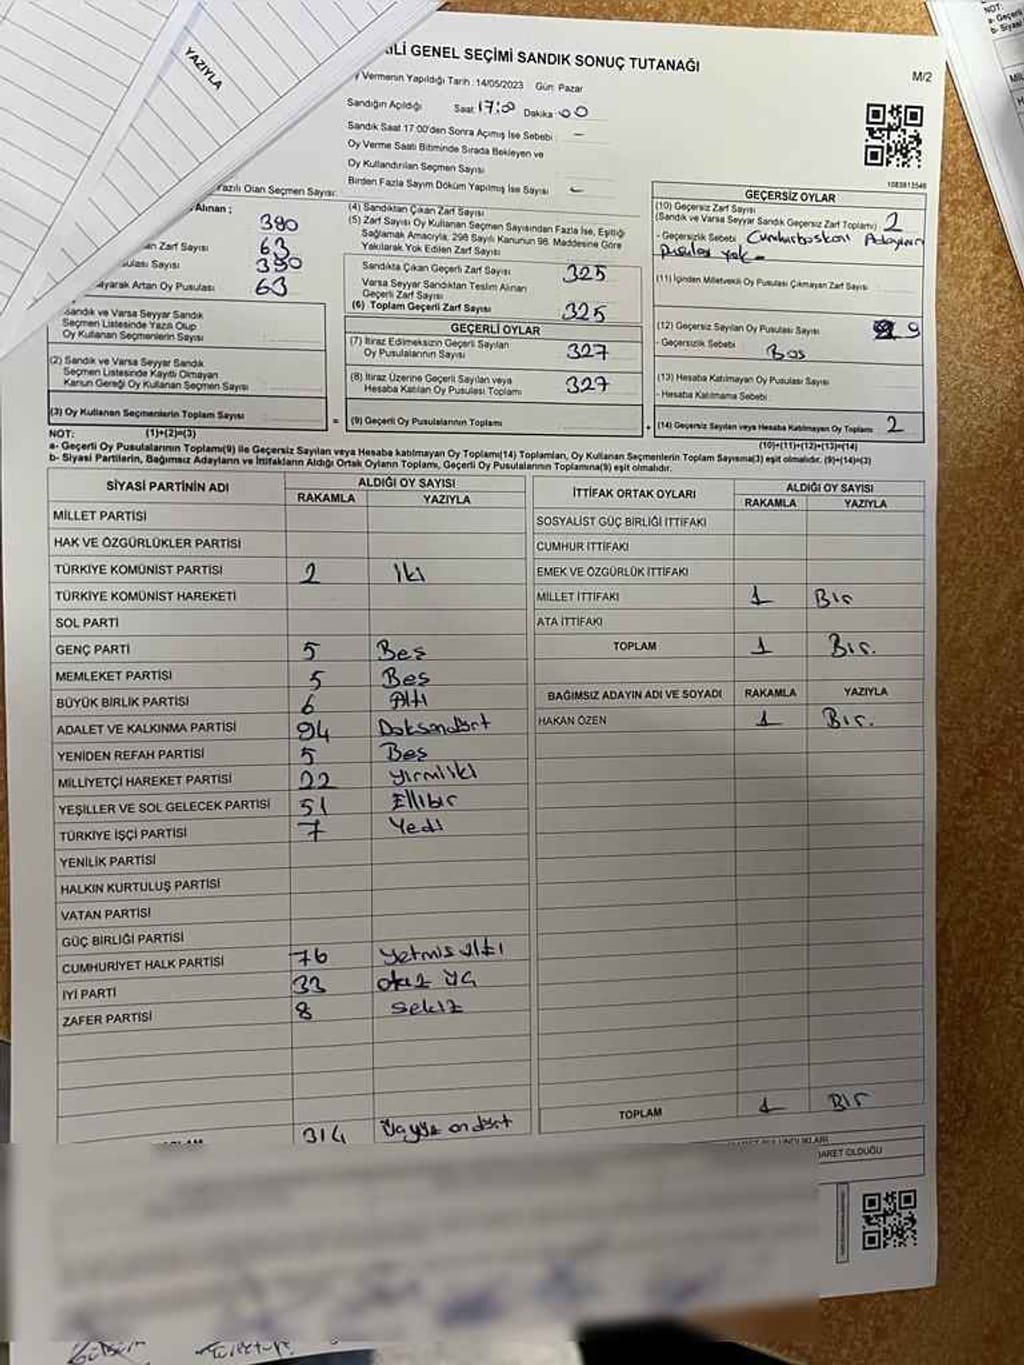 YAZIYLA
NOT:
İLİ GENEL SEÇİMİ SANDIK SONUÇ TUTANAĞI
M/2
y Vermenin Yapıldığı Tarih : 14/05/2023 Gün: Pazar
Sandığın Açıldığı Saat: 17:00 Dakika: 00
Sandık Saat 17:00'den Sonra Açılmış İse Sebebi : -
Oy Verme Saati Bitiminde Sırada Bekleyen ve
Oy Kullandırılan Seçmen Sayısı
Birden Fazla Sayım Döküm Yapılmış İse Sayısı -
1083813546
Yazılı Olan Seçmen Sayısı:
Alınan ; 390
an Zarf Sayısı 63
ulası Sayısı 390
ayarak Artan Oy Pusulası 63
Sandık ve Varsa Seyyar Sandık
Seçmen Listesinde Yazılı Olup
Oy Kullanan Seçmenlerin Sayısı
(2) Sandık ve Varsa Seyyar Sandık
Seçmen Listesinde Kayıtlı Olmayan
Kanun Gereği Oy Kullanan Seçmen Sayısı
(3) Oy Kullanan Seçmenlerin Toplam Sayısı
(1)+(2)=(3)
(4) Sandıktan Çıkan Zarf Sayısı
(5) Zarf Sayısı Oy Kullanan Seçmen Sayısından Fazla İse, Eşitliği
Sağlamak Amacıyla, 298 Sayılı Kanunun 98. Maddesine Göre
Yakılarak Yok Edilen Zarf Sayısı
Sandıkta Çıkan Geçerli Zarf Sayısı 325
Varsa Seyyar Sandıktan Teslim Alınan
Geçerli Zarf Sayısı
(6) Toplam Geçerli Zarf Sayısı 325
GEÇERLİ OYLAR
(7) İtiraz Edilmeksizin Geçerli Sayılan
Oy Pusulalarının Sayısı 327
(8) İtiraz Üzerine Geçerli Sayılan veya
Hesaba Katılan Oy Pusulası Toplamı 327
= (9) Geçerli Oy Pusulalarının Toplamı
GEÇERSİZ OYLAR
(10) Geçersiz Zarf Sayısı
(Sandık ve Varsa Seyyar Sandık Geçersiz Zarf Toplamı) 2
- Geçersizlik Sebebi Cumhurbaşkanı Adayının
pusulası yok -
(11) İçinden Milletvekili Oy Pusulası Çıkmayan Zarf Sayısı
(12) Geçersiz Sayılan Oy Pusulası Sayısı 9
- Geçersizlik Sebebi Boş
(13) Hesaba Katılmayan Oy Pusulası Sayısı
- Hesaba Katılmama Sebebi
+ (14) Geçersiz Sayılan veya Hesaba Katılmayan Oy Toplamı 2
(10)+(11)+(12)+(13)=(14)
NOT:
a- Geçerli Oy Pusulalarının Toplamı(9) ile Geçersiz Sayılan veya Hesaba katılmayan Oy Toplamı(14) Toplamları, Oy Kullanan Seçmenlerin Toplam Sayısına(3) eşit olmalıdır. (9)+(14)=(3)
b- Siyasi Partilerin, Bağımsız Adayların ve İttifakların Aldığı Ortak Oyların Toplamı, Geçerli Oy Pusulalarının Toplamına(9) eşit olmalıdır.
SİYASİ PARTİNİN ADI ALDIĞI OY SAYISI
RAKAMLA YAZIYLA
MİLLET PARTİSİ
HAK VE ÖZGÜRLÜKLER PARTİSİ
TÜRKİYE KOMÜNİST PARTİSİ 2 İki
TÜRKİYE KOMÜNİST HAREKETİ
SOL PARTİ
GENÇ PARTİ 5 Beş
MEMLEKET PARTİSİ 5 Beş
BÜYÜK BİRLİK PARTİSİ 6 Altı
ADALET VE KALKINMA PARTİSİ 94 Doksandört
YENİDEN REFAH PARTİSİ 5 Beş
MİLLİYETÇİ HAREKET PARTİSİ 22 yirmiiki
YEŞİLLER VE SOL GELECEK PARTİSİ 51 Ellibir
TÜRKİYE İŞÇİ PARTİSİ 7 Yedi
YENİLİK PARTİSİ
HALKIN KURTULUŞ PARTİSİ
VATAN PARTİSİ
GÜÇ BİRLİĞİ PARTİSİ
CUMHURİYET HALK PARTİSİ 76 yetmişaltı
İYİ PARTİ 33 otuz üç
ZAFER PARTİSİ 8 sekiz
314 üçyüz ondört
İTTİFAK ORTAK OYLARI ALDIĞI OY SAYISI
RAKAMLA YAZIYLA
SOSYALİST GÜÇ BİRLİĞİ İTTİFAKI
CUMHUR İTTİFAKI
EMEK VE ÖZGÜRLÜK İTTİFAKI
MİLLET İTTİFAKI 1 Bir
ATA İTTİFAKI
TOPLAM 1 Bir.
BAĞIMSIZ ADAYIN ADI VE SOYADI RAKAMLA YAZIYLA
HAKAN ÖZEN 1 Bir.
TOPLAM 1 Bir
ARET OLDUĞU